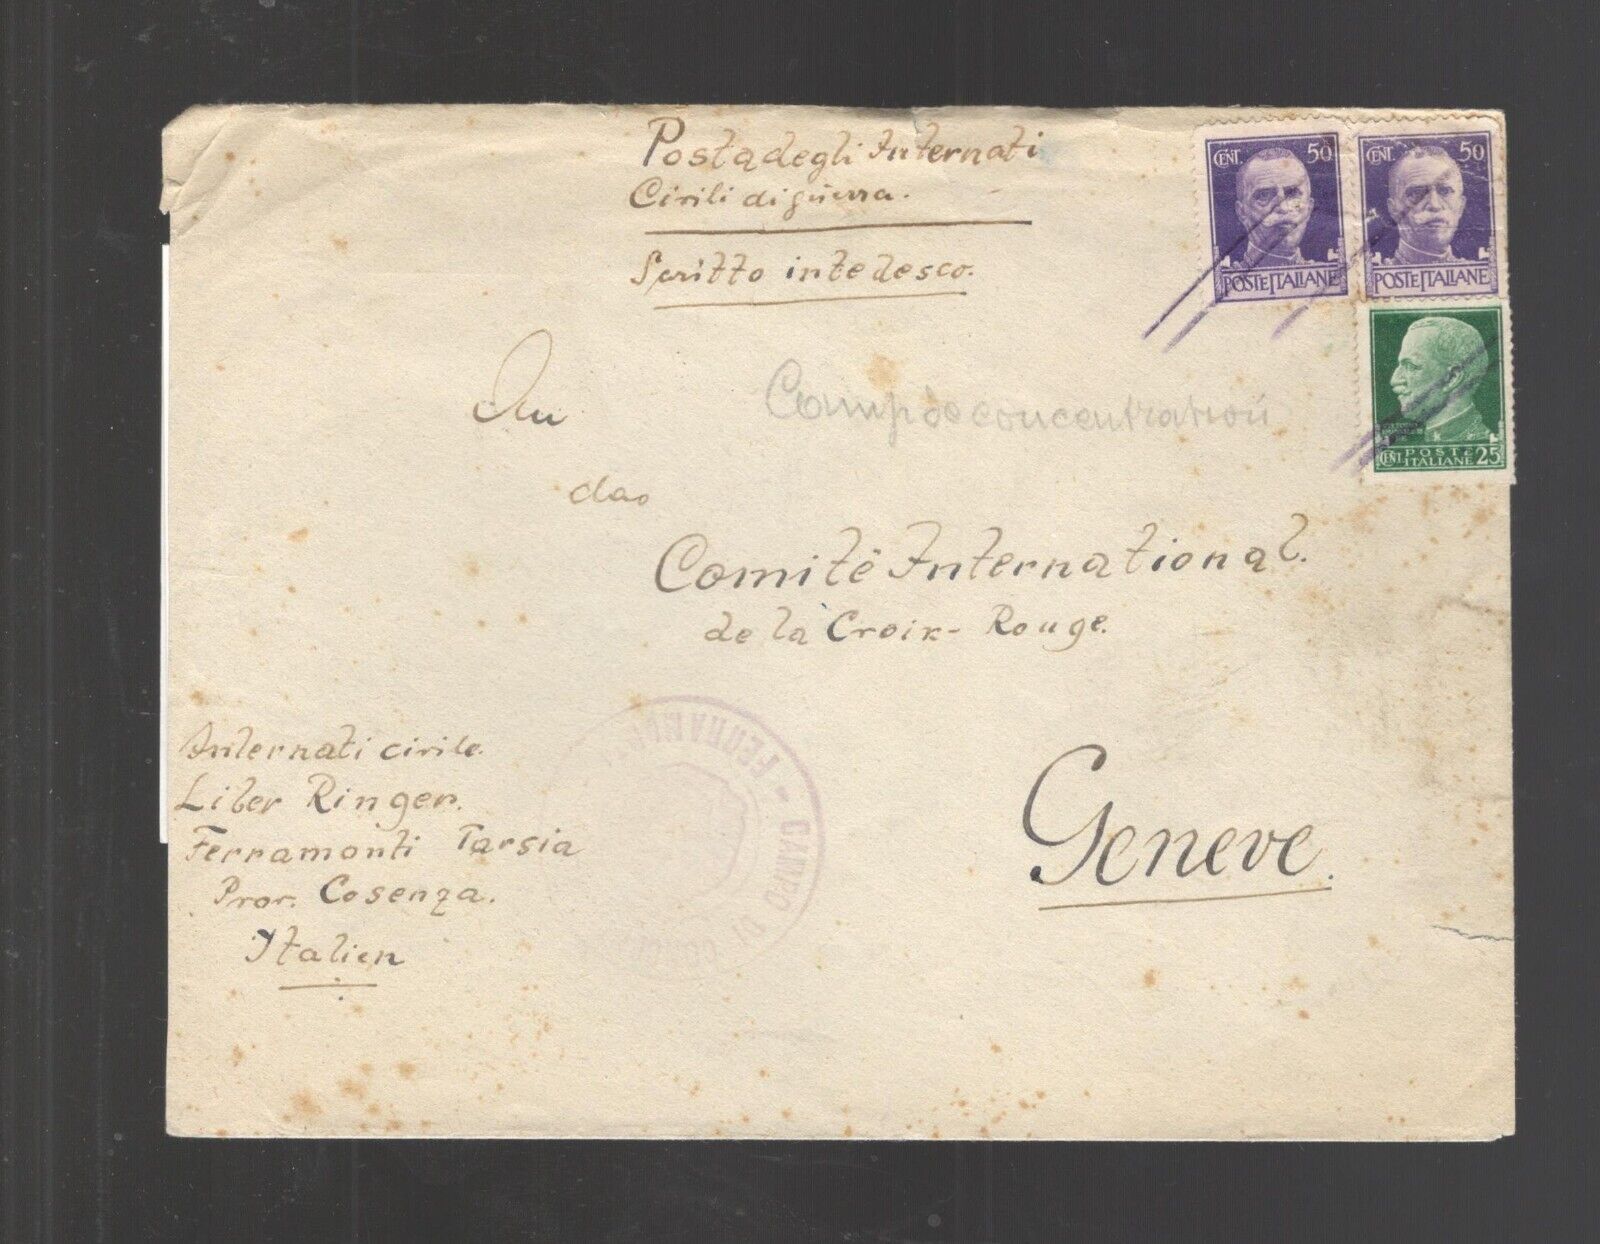 Posta degli Internati
Civili di guerra.
Scritto in tedesco.
CENT. 50
POSTE ITALIANE
CENT. 50
POSTE ITALIANE
CENT. POSTE ITALIANE 25
An
Camp de concentration
das
Comité International.
de la Croix-Rouge.
Geneve.
Internati civile.
Liber Ringer.
Ferramonti Tarsia
Prov. Cosenza.
Italien
CAMPO DI